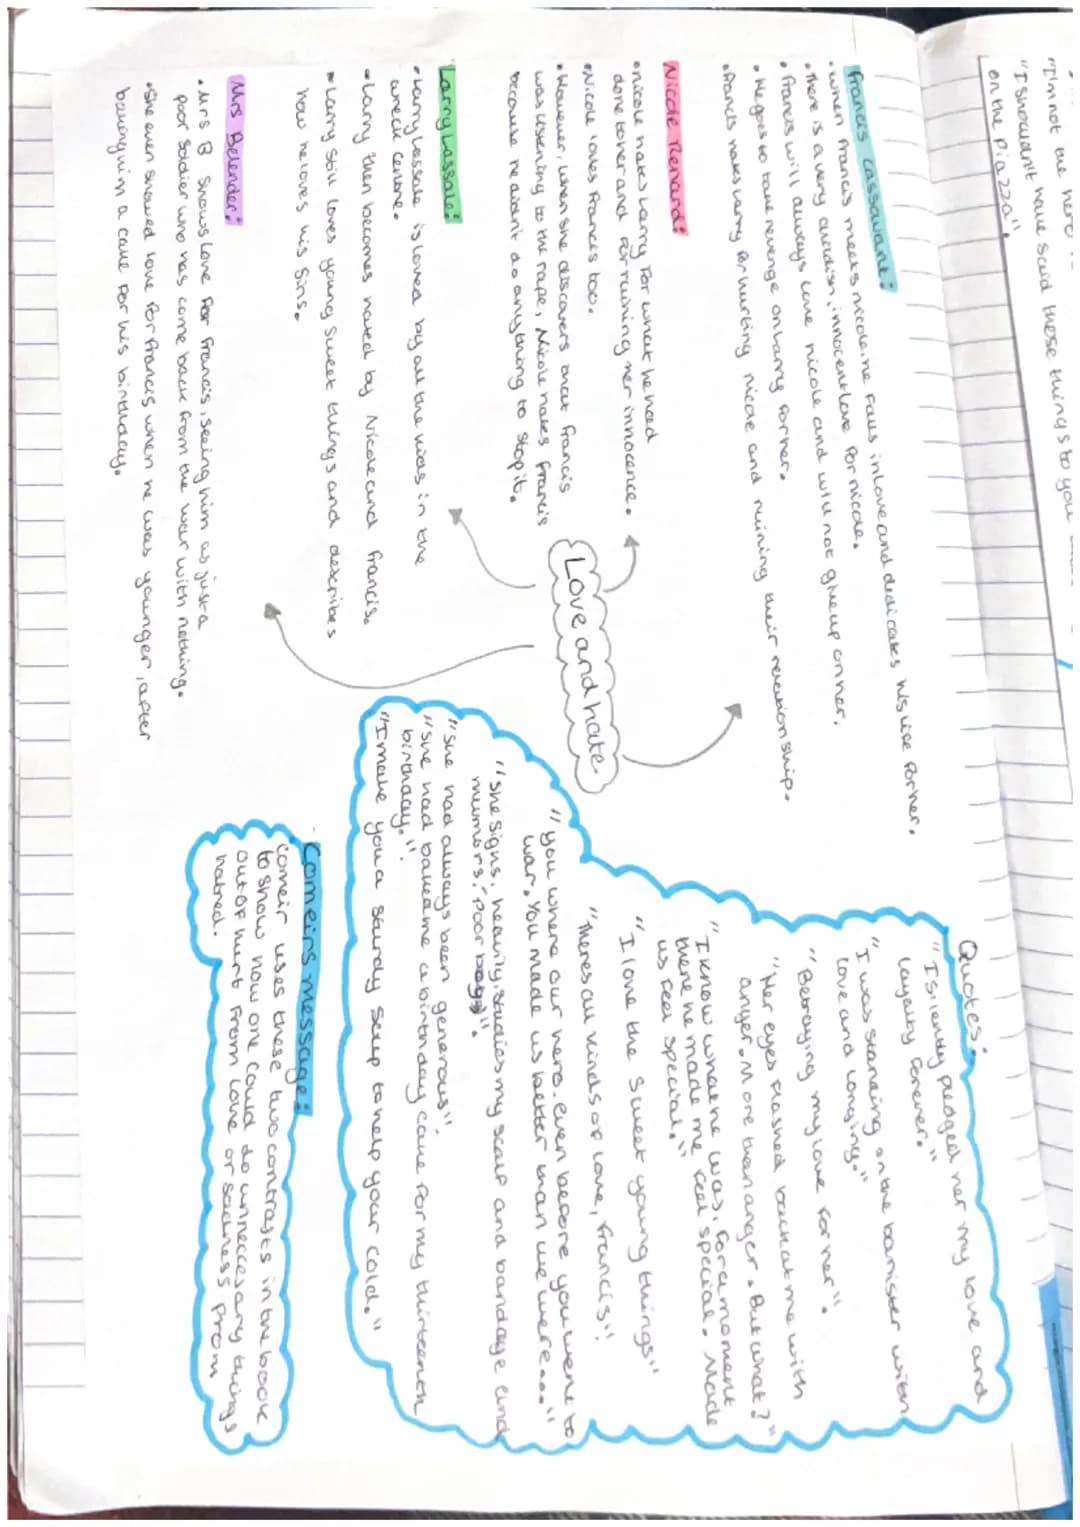 "I'm not the hero
"I shouldn't have said these things to you
on the piazza".
Francis Cassavant:
• when francis meets nicole, he falls in love and dedicates his life for her.
• There is a very childish, innocent love for nicole.
• francis will always love nicole and will not give up on her.
• He goes to take revenge on Larry for her.
• francis hates Larry for hurting nicole and ruining their relationship.
Nicole Renard:
• nicole hates Larry for what he had
done to her and for ruining her innocence.
• Nicole loves francis too.
• However, when she discovers that francis
was listening to the rape, Nicole hates francis
because he didn't do anything to stop it.
Love and hate
Larry Lassale:
• Larry Lassale is loved by all the kids in the
wreck centre.
• Larry then becomes hated by Nicole and francis.
• Larry still loves young sweet things and describes
how he loves his sins.
Mrs Belander:
• Mrs B shows love for francis, seeing him as just a
poor soldier who has come back from the war with nothing.
• She even showed love for francis when he was younger, after
baking him a cake for his birthday.
Quotes:
"I silently pledged her my love and
loyalty forever."
"I was standing on the banister with
love and longing."
"Betraying my love for her".
"Her eyes flashed back at me with
anger. More than anger. But what?"
"I know what he was, for a moment
there he made me feel special. Made
us feel special."
"I love the sweet young things"
"Theres all kinds of love, francis".
"you where our hero. Even before you went to
war. You made us better than we were..."
"she signs, heavily, studies my scarf and bandage and
mumbrs, 'poor boy'".
"she had always been generous".
"she had bake me a birthday cake for my thirteenth
birthday.".
"I make you a sturdy soup to help your cold."
Comeirs message:
comeir uses these two contrasts in the book
to show how one could do unneccesary things
out of hurt from love or sadness from
hatred.